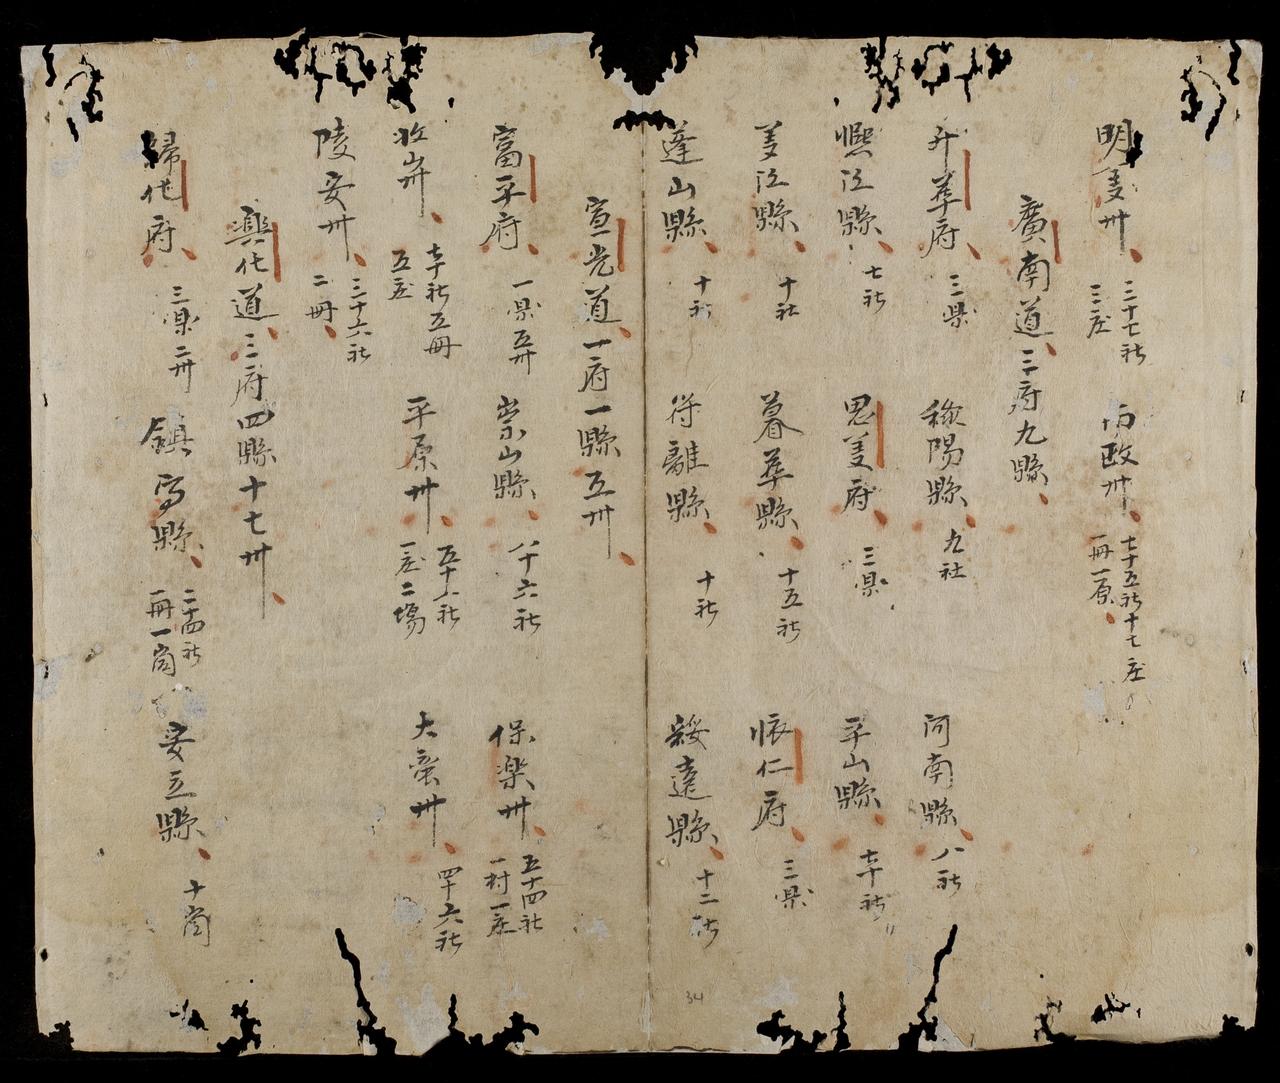 明灵州 二十七社
三庄
布政州 七十五社十七庄
一冊一原
廣南道三府九縣
升華府 三県
陽縣 九社
河南縣 八社
熙江縣 七社
思义府 三県
平山縣 七十社
义江縣 十社
慕華縣 十五社
懷仁府 三県
蓬山縣 十社
符離縣 十社
綏遠縣 十二社
宣光道一府一縣五州
富平府 一県五州
崇山縣 八十六社
保楽州 五十四社
一村一庄
收州 七十社五冊
五庄
平原州 五十社
一庄二場
大蛮州 四十六社
陵安州 三十六社
二冊
興化道三府四縣十七州
歸化府 三県二州
鎮縣 二十四社
一冊一峝
安立縣 十峝
34